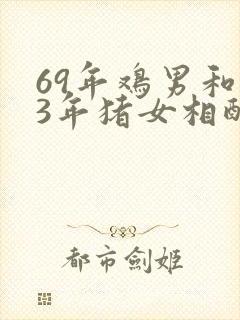 69年鸡男和
3年猪女相配
都市劍姬